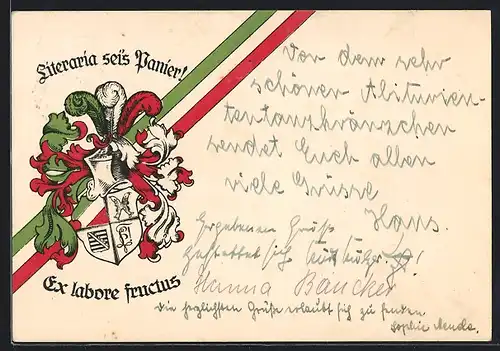 Literaria sei's Panier!
Ex labore fructus
Von dem sehr
schönen Abiturien-
tentanzkränzchen
sendet Euch allen
viele Grüsse
Hans.
Ergebenen Gruß
gestattet sich
Hanna Bäucker
Die herzlichsten Grüße erlaubt sich zu senden
Sophie